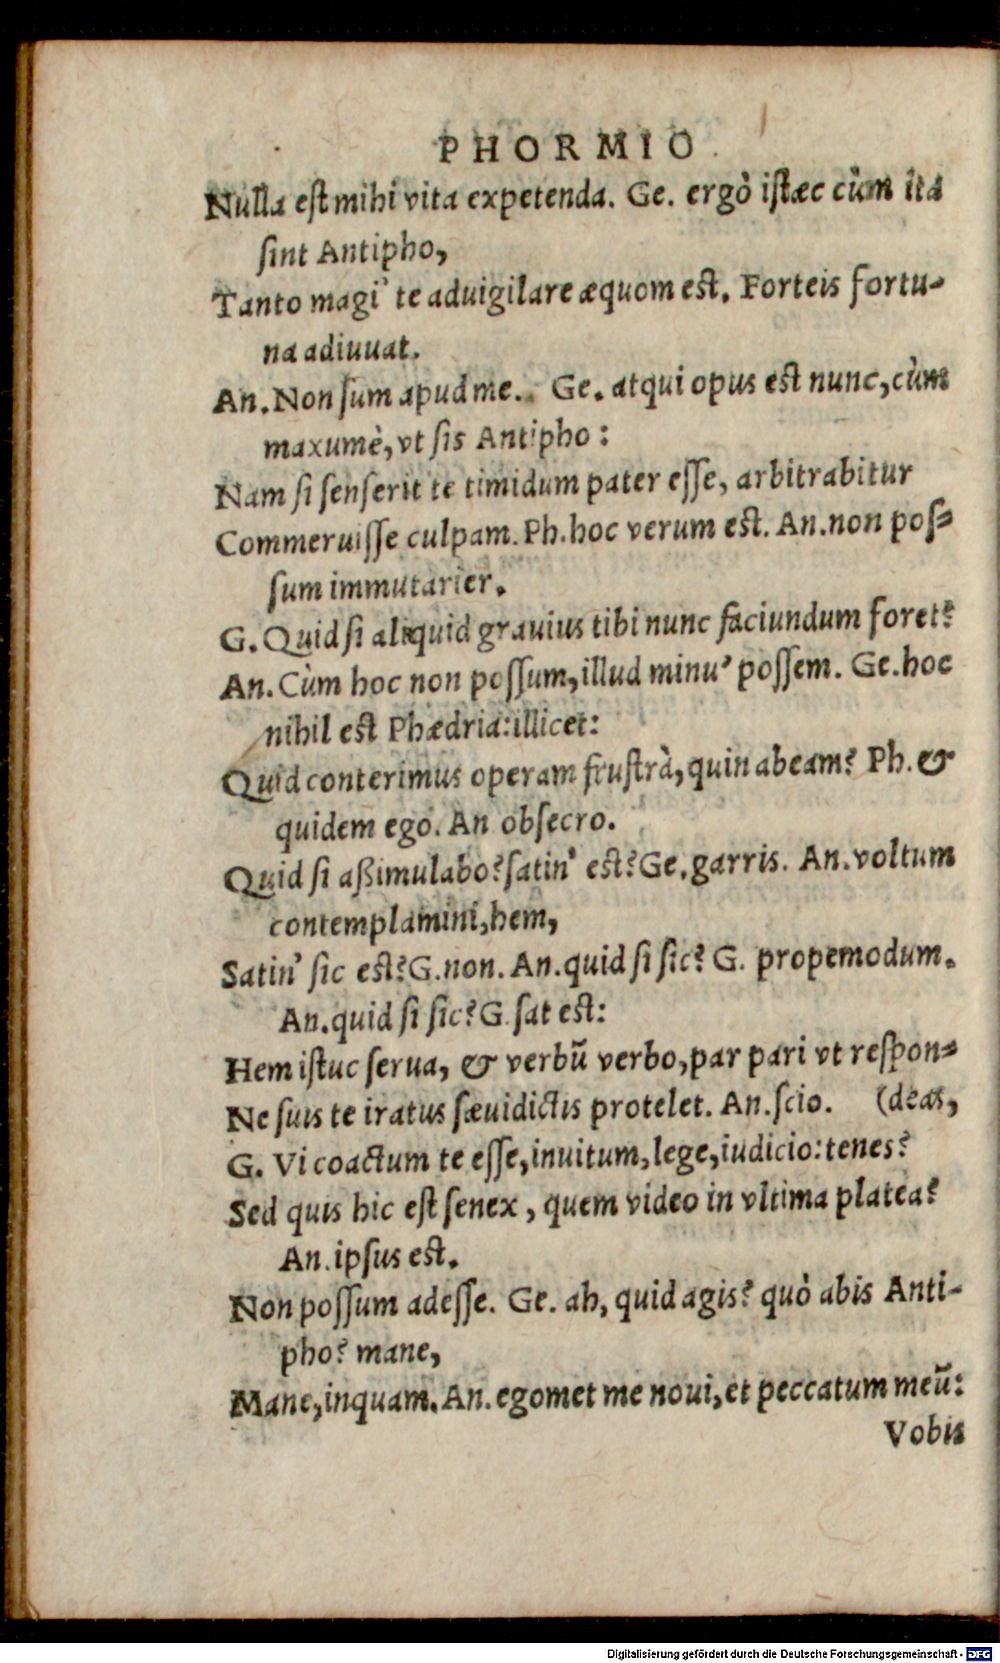 PHORMIO
Nulla est mihi vita expetenda. Ge. ergò istæc cùm ita
sint Antipho,
Tanto magi' te aduigilare æquom est. Forteis fortu-
na adiuuat.
An. Non sum apud me. Ge. atqui opus est nunc, cùm
maxumè, vt sis Antipho:
Nam si senserit te timidum pater esse, arbitrabitur
Commeruisse culpam. Ph. hoc verum est. An. non pos-
sum immutarier.
G. Quid si aliquid grauius tibi nunc faciundum foret?
An. Cùm hoc non possum, illud minu' possem. Ge. hoc
nihil est Phædria: illicet:
Quid conterimus operam frustrà, quin abeam? Ph. &
quidem ego. An obsecro.
Quid si aßimulabo? satin' est? Ge. garris. An. voltum
contemplamini, hem,
Satin' sic est? G. non. An. quid si sic? G. propemodum.
An. quid si sic? G. sat est:
Hem istuc serua, & verbū verbo, par pari vt respon-
Ne suis te iratus sæuidictis protelet. An. scio. (deas,
G. Vi coactum te esse, inuitum, lege, iudicio: tenes?
Sed quis hic est senex, quem video in vltima platea?
An. ipsus est.
Non possum adesse. Ge. ah, quid agis? quò abis Anti-
pho? mane,
Mane, inquam. An. egomet me noui, et peccatum meū:
Vobis
Digitalisierung gefördert durch die Deutsche Forschungsgemeinschaft - DFG